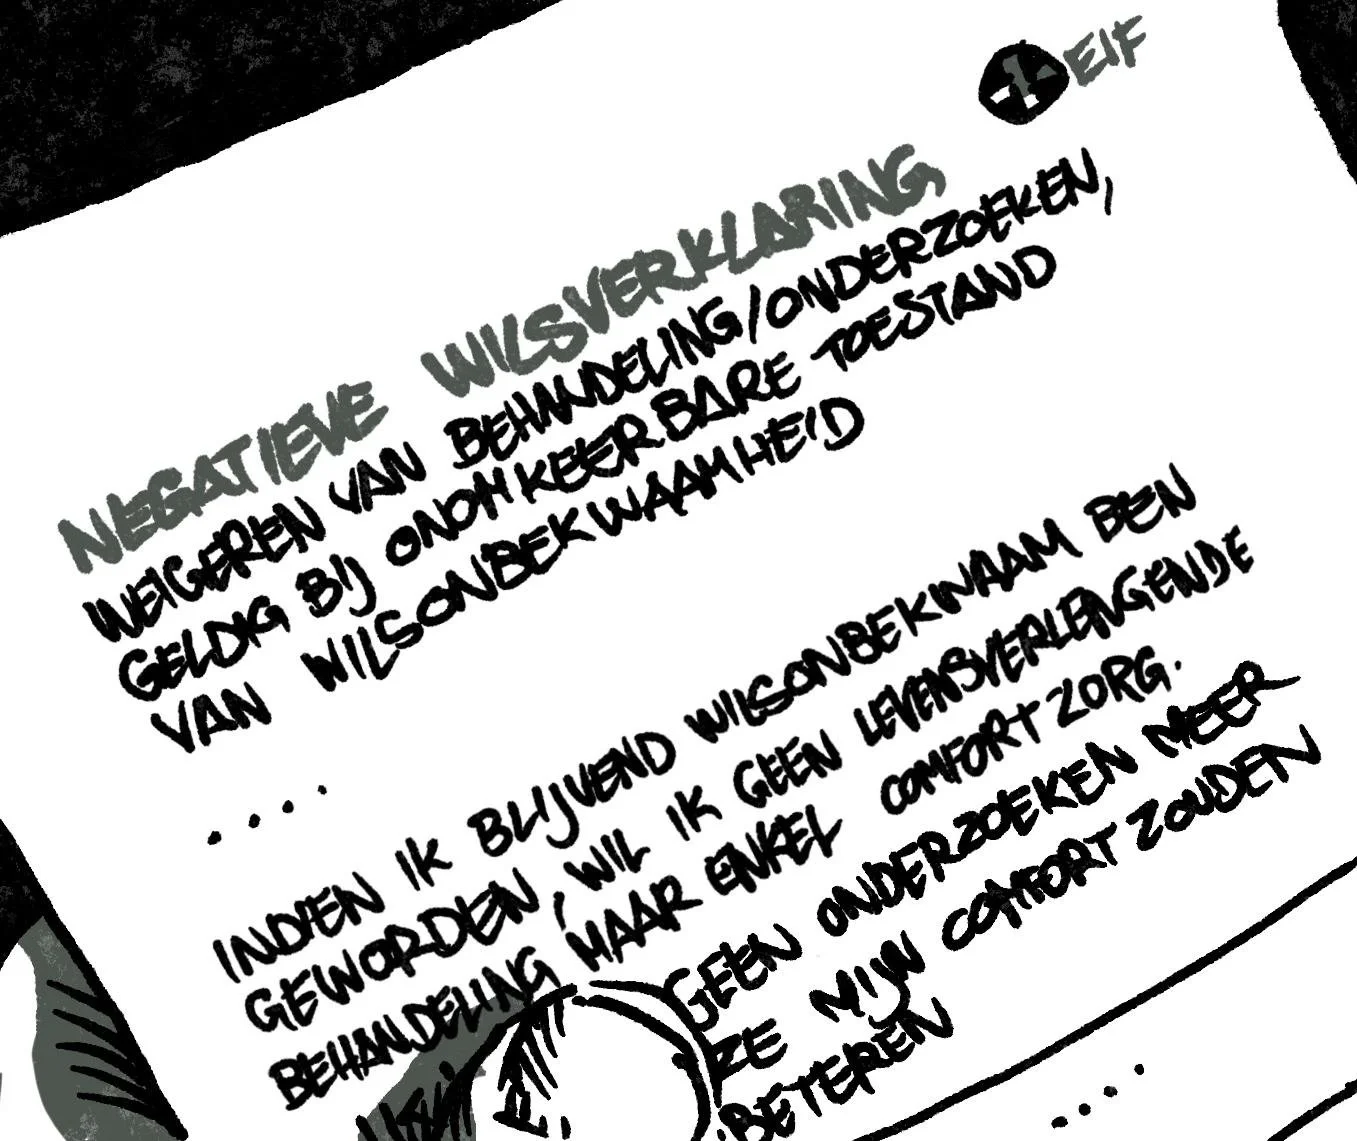 EIF
NEGATIEVE WILSVERKLARING
WEIGEREN VAN BEHANDELING/ONDERZOEKEN,
GELDIG BIJ ONOMKEERBARE TOESTAND
VAN WILSONBEKWAAMHEID
....
INDIEN IK BLIJVEND WILSONBEKWAAM BEN
GEWORDEN, WIL IK GEEN LEVENSVERLENGENDE
BEHANDELING MAAR ENKEL COMFORTZORG.
GEEN ONDERZOEKEN MEER
ZE MIJN COMFORT ZOUDEN
BETEREN
....